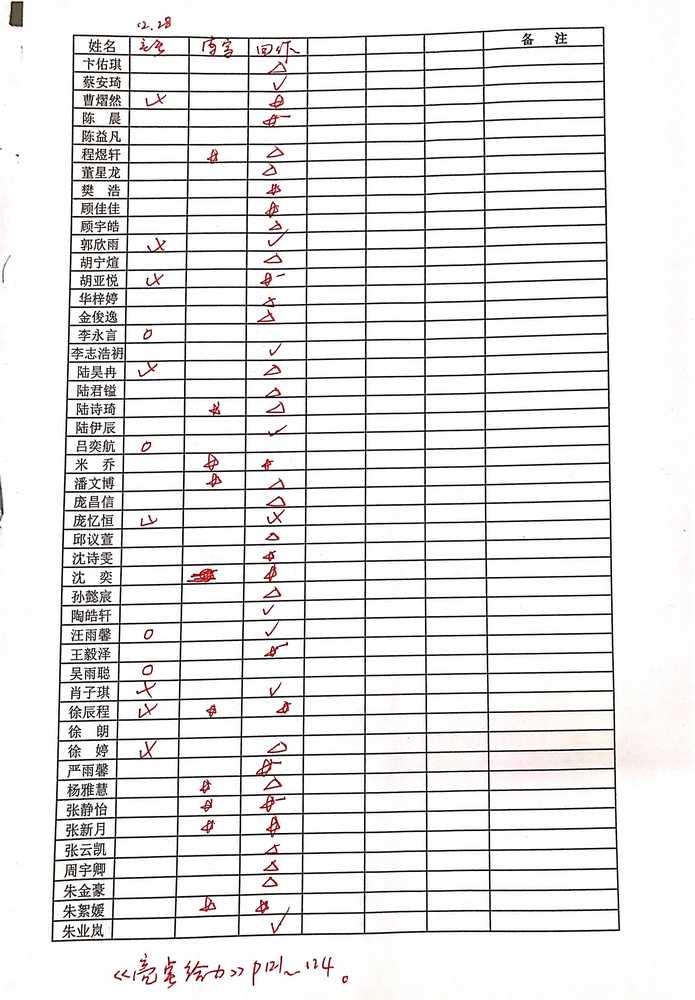 12.28
姓名 回忆 备注
卞佑琪 △
蔡安琦 ✓
曹熠然 ☆
陈晨 ☆-
陈益凡
程煜轩 ☆ △
董星龙 △
樊浩 ☆
顾佳佳 ☆
顾宇皓 △
郭欣雨 ✓
胡宁煊 △
胡亚悦 ☆-
华梓婷
金俊逸 △
李永言 ○
李志浩礽 ✓
陆昊冉 △
陆君镒 △
陆诗琦 ☆ △
陆伊辰 ✓
吕奕航 ○
米乔 ☆ ☆
潘文博 ☆ △
庞昌信 △
庞忆恒
邱议萱 △
沈诗雯 ☆
沈奕 ☆
孙懿宸 △
陶皓轩 ✓
汪雨馨 ○ ✓
王毅泽 ☆-
吴雨聪 ○
肖子琪 ✓
徐辰程 ☆ ☆
徐朗
徐婷 △
严雨馨 ☆-
杨雅慧 ☆ △
张静怡 ☆ ☆-
张新月 ☆ ☆
张云凯 △
周宇卿 △
朱金豪 △
朱絮媛 ☆ ☆
朱业岚 ✓
《亮点给力》P121~124。